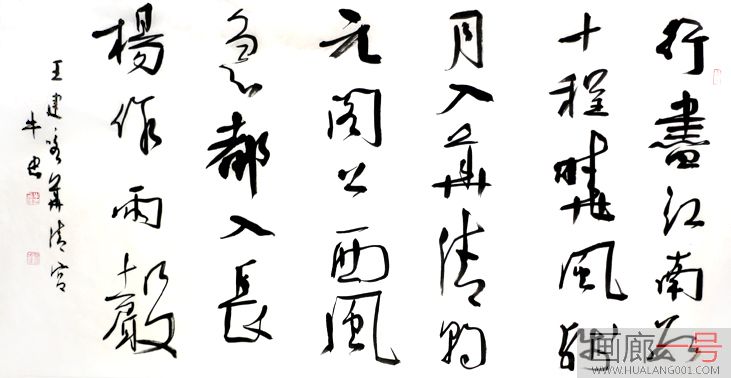 行盡江南数
十程曉風残
月入華清朝
元閣上西風
急都入長
楊作雨聲
王建華清宫
牛
画廊一号
WWW.HUALANG001.COM